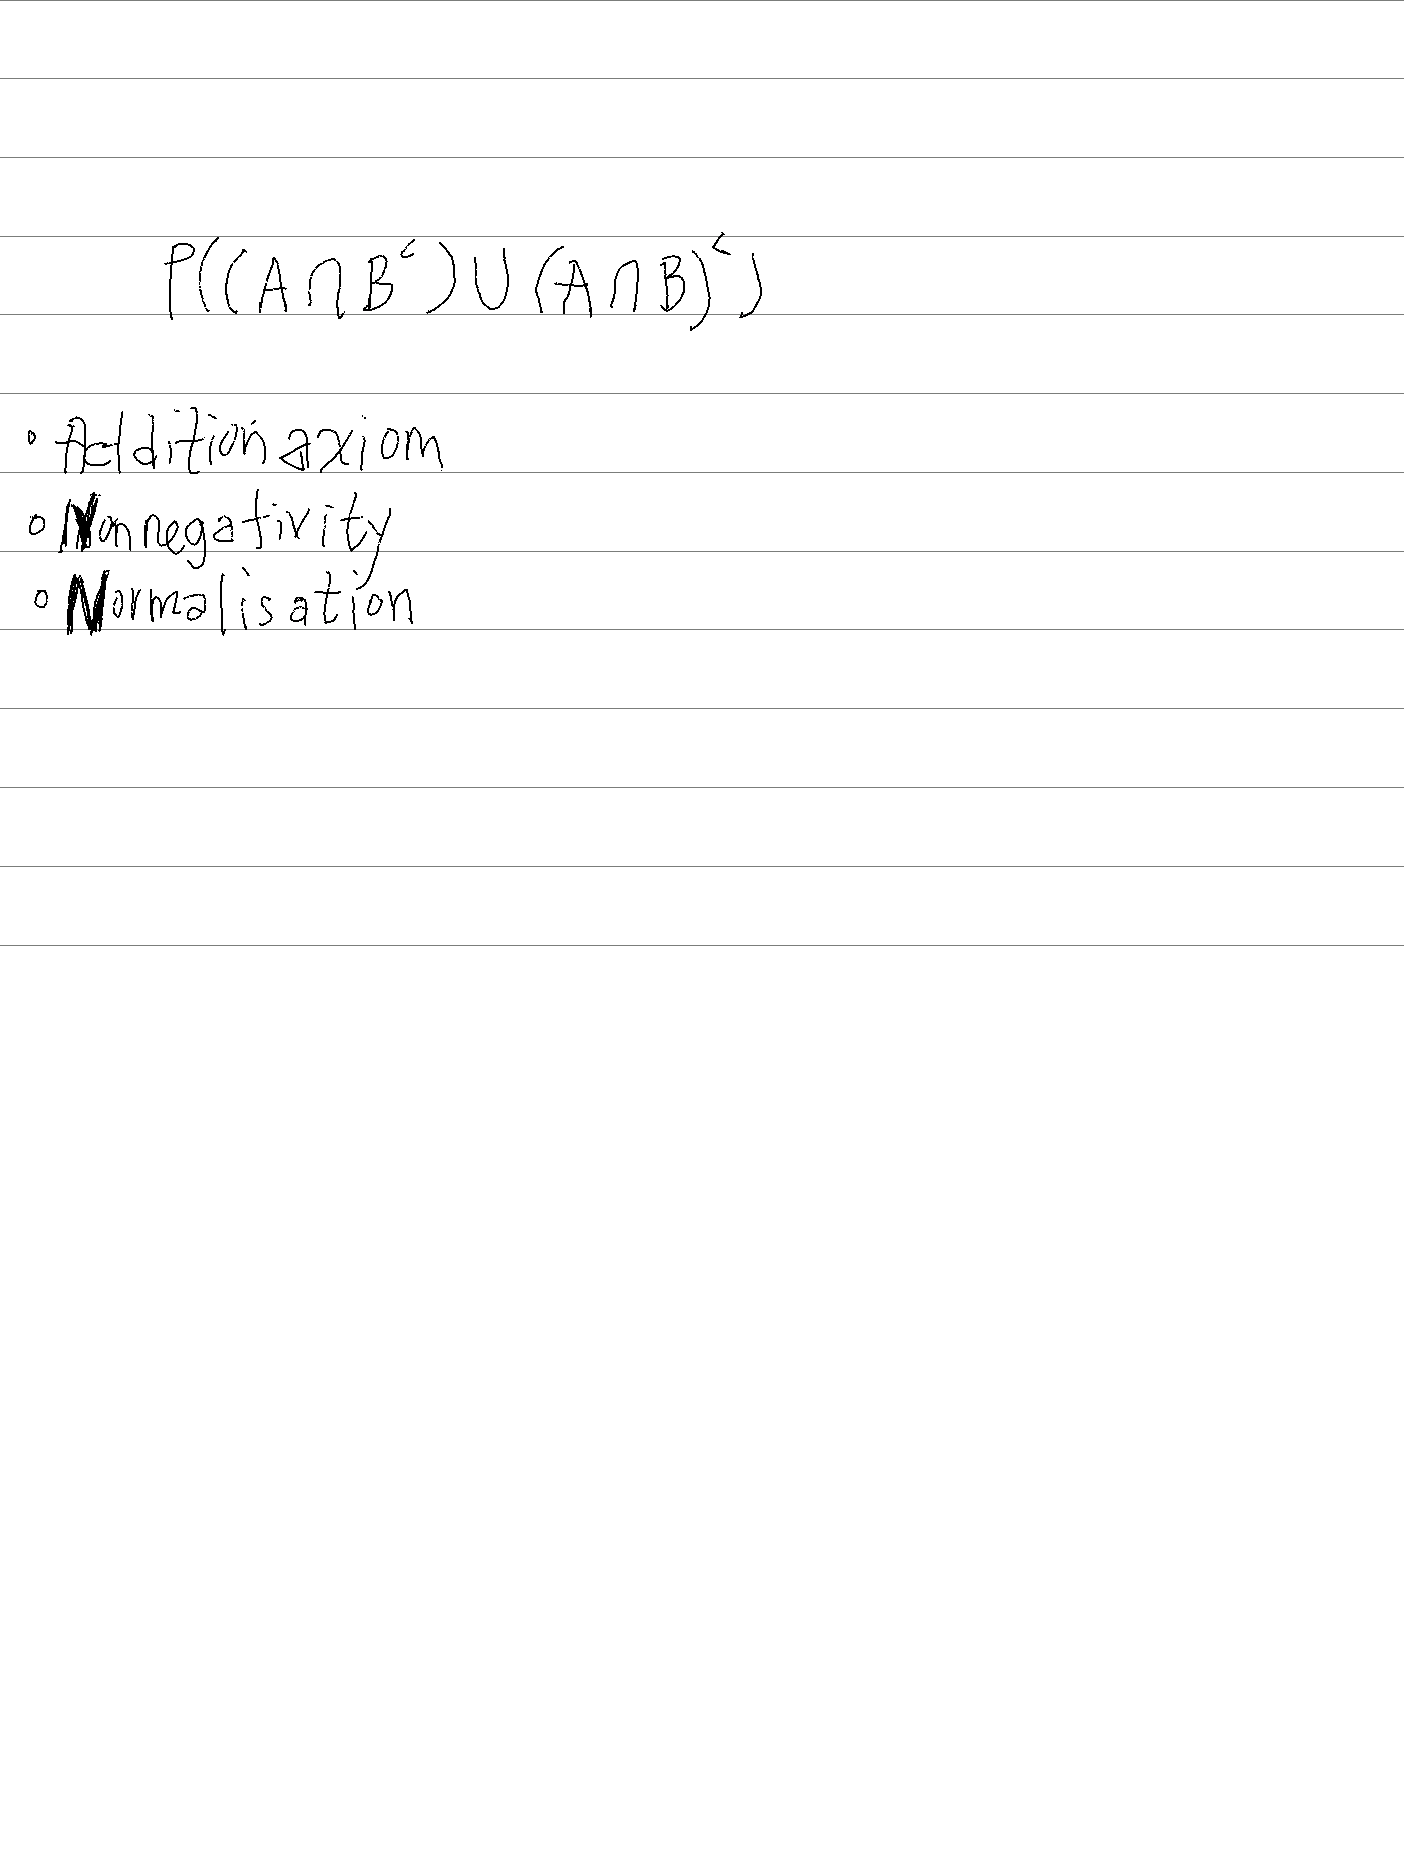 P((A∩Bᶜ)∪(A∩B)ᶜ)
• Addition axiom
• Nonnegativity
• Normalisation